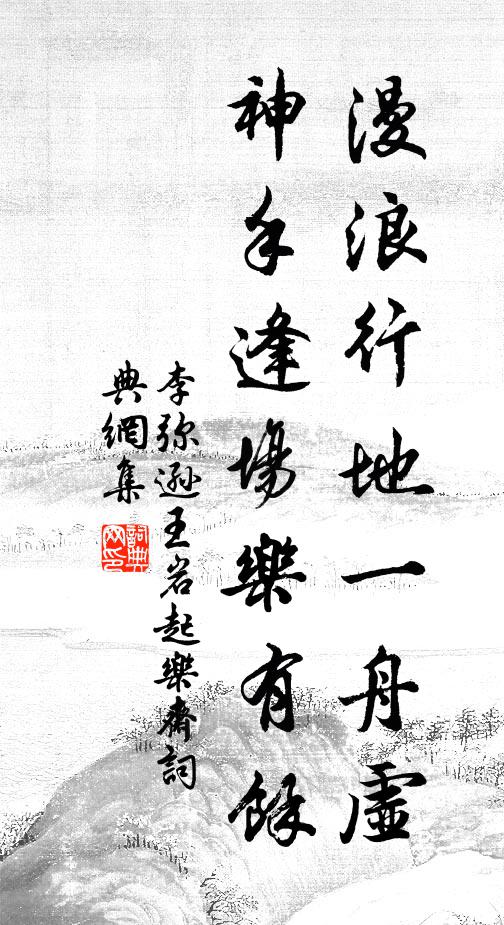 漫浪行地一舟虛
神手逢場樂有餘
李弥遜王岩起樂齋詞
典網集
詞典網印